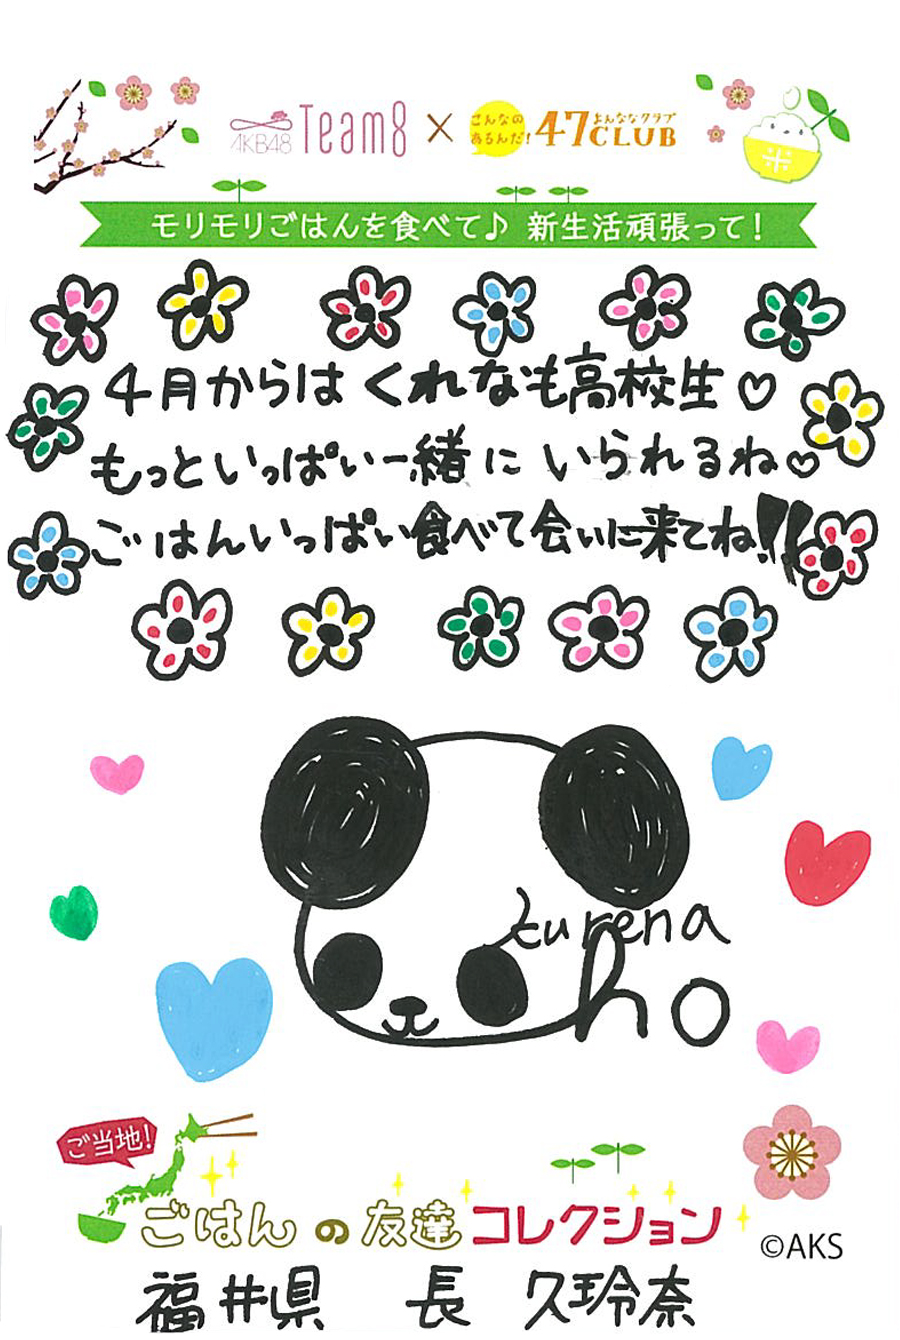 AKB48 Team8 × こんなの あるんだ! 47CLUB よんななクラブ
米
モリモリごはんを食べて♪ 新生活頑張って!
4月からは くれなも高校生♡
もっといっぱい一緒に いられるね♡
ごはんいっぱい食べて会いに来てね!!
kurena
ho
ご当地!
ごはんの友達コレクション
©AKS
福井県 長 久玲奈